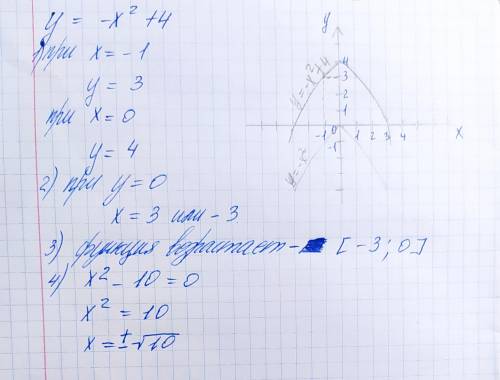 y = -x² + 4
1) при x = -1
y = 3
при x = 0
y = 4
2) при y = 0
x = 3 или -3
3) функция возрастает - [-3; 0]
4) x² - 10 = 0
x² = 10
x = ±√10
y
4
3
2
1
-1 0 1 2 3 4
-1
x
y = -x² + 4
y = -x²